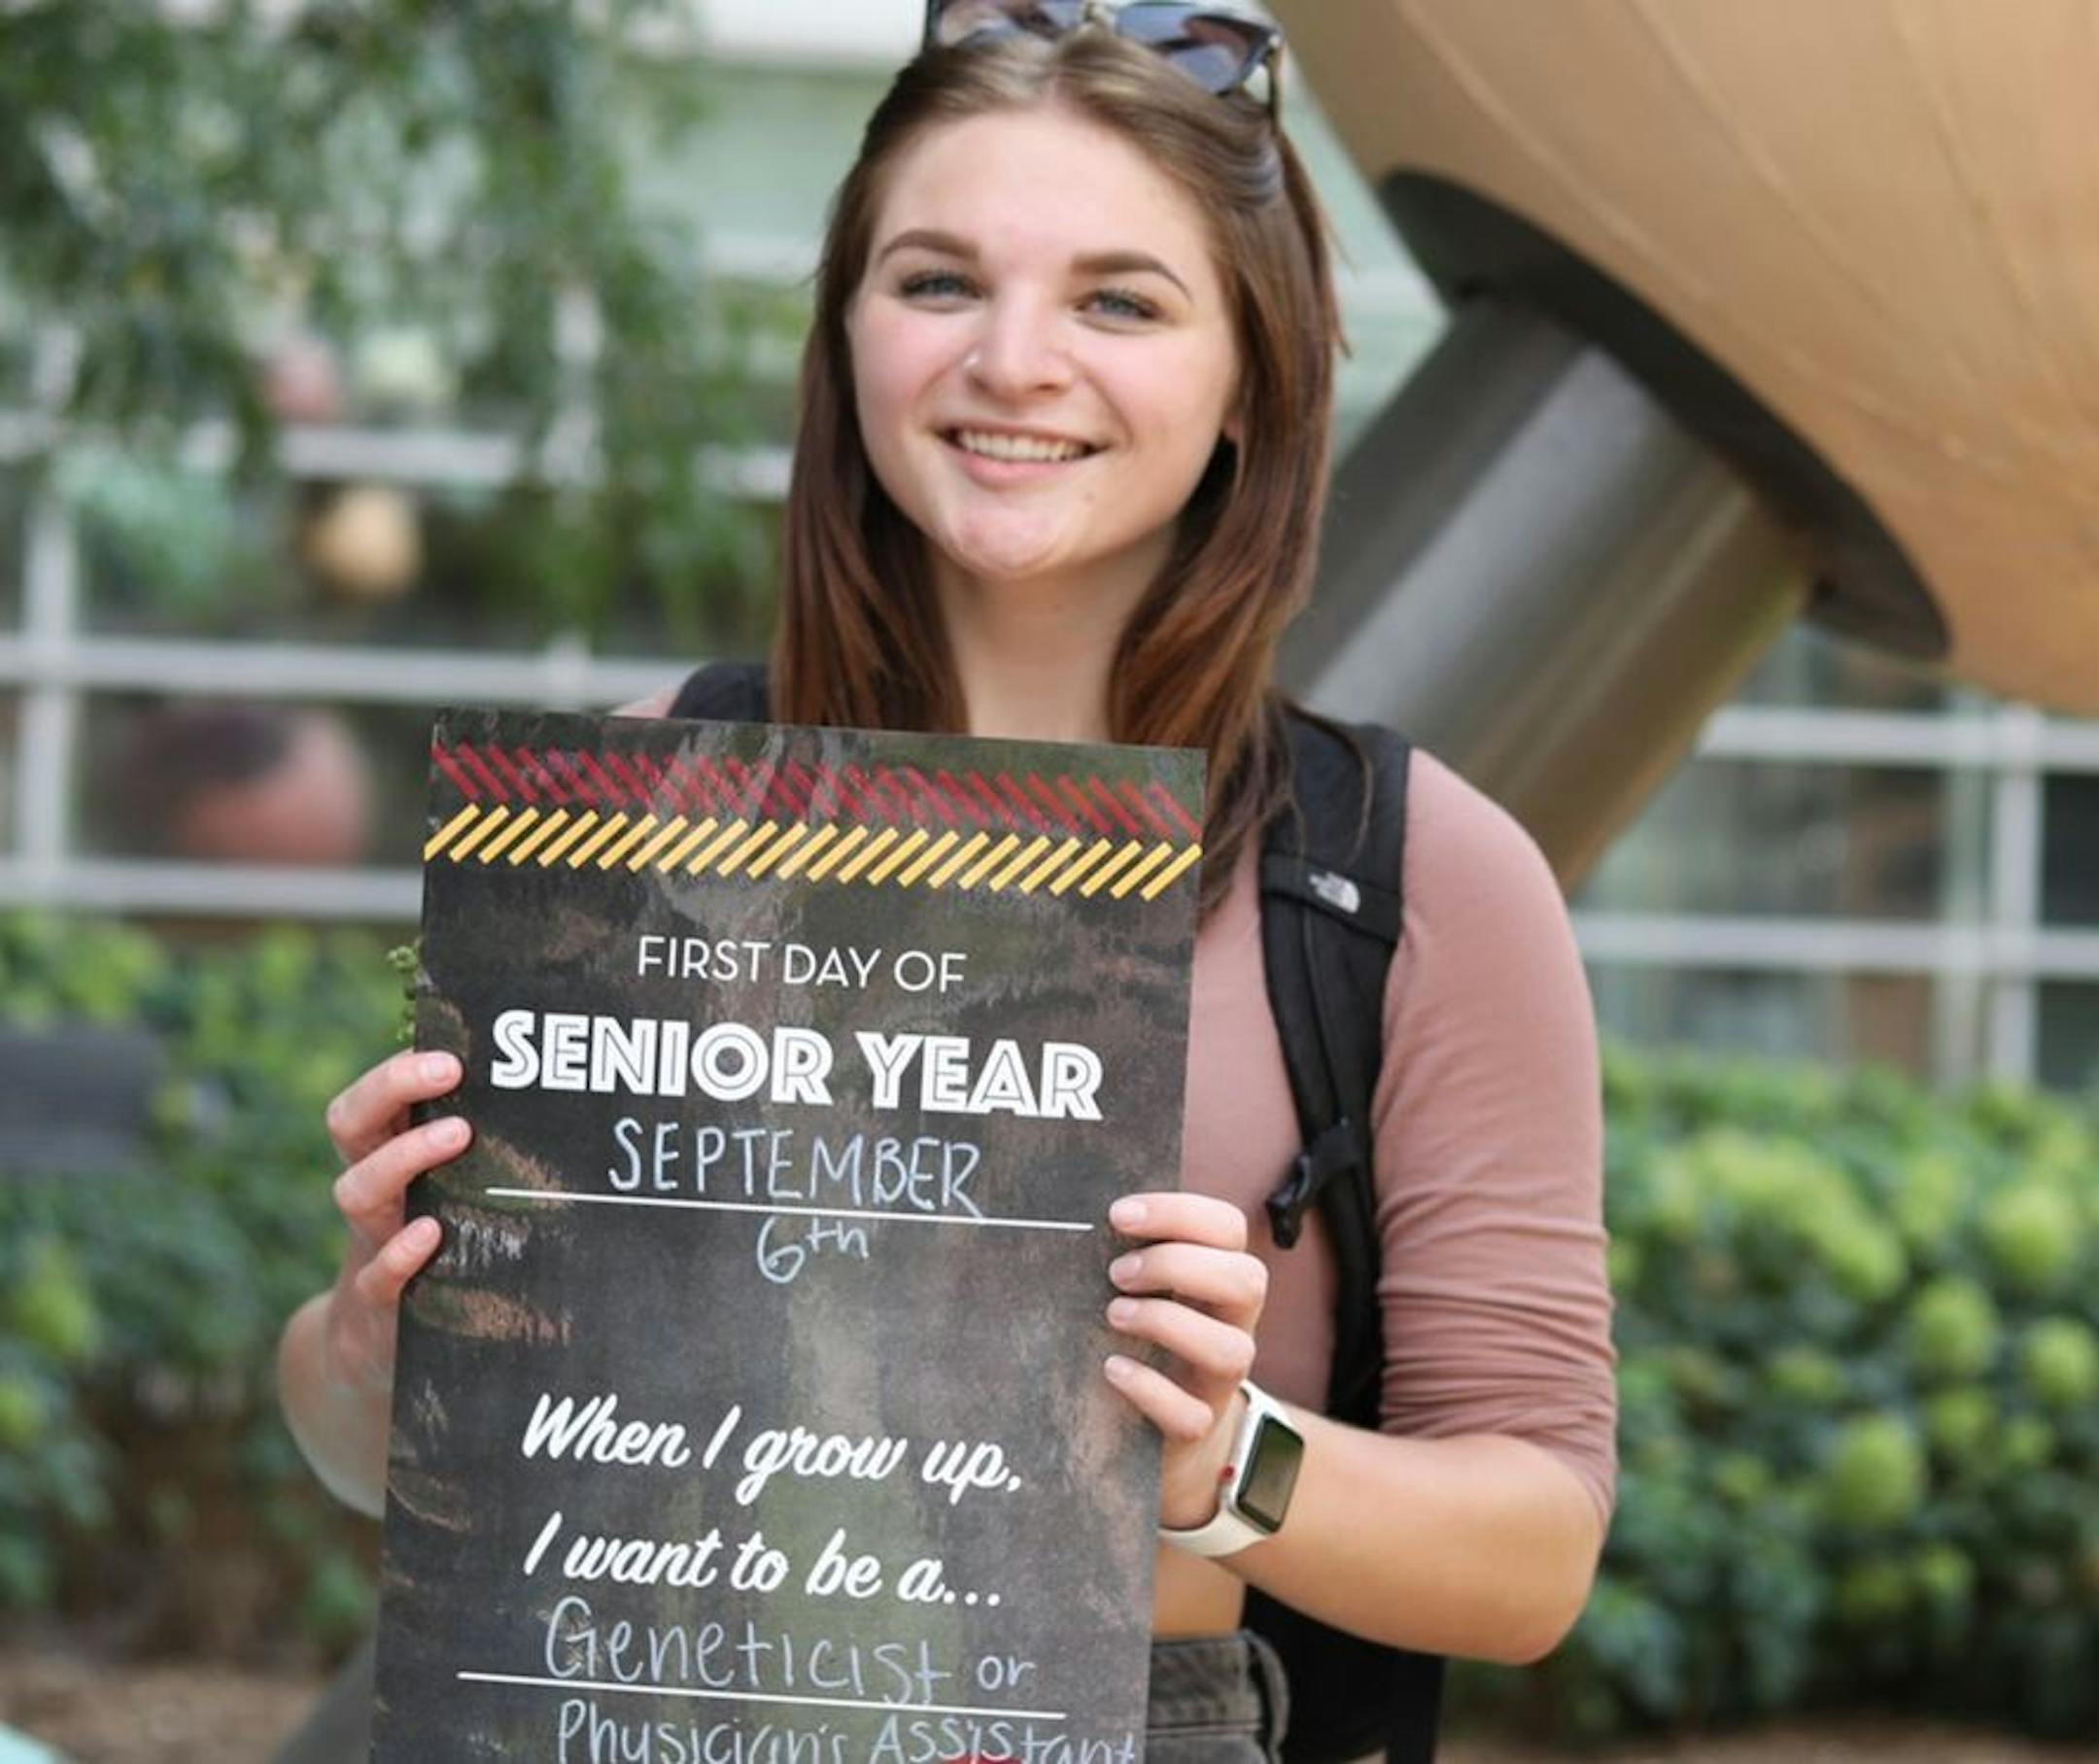 FIRST DAY OF
SENIOR YEAR
SEPTEMBER
6th
When I grow up,
I want to be a...
Geneticist or
Physician's Assistant